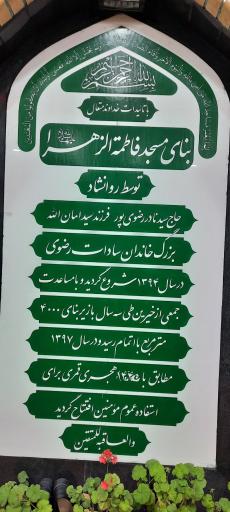 بسم الله الرحمن الرحیم
با تاییدات خداوند متعال
بنای مسجد فاطمة الزهرا
توسط روانشاد
حاج سید نادر رضوی پور فرزند سید امان الله
بزرگ خاندان سادات رضوی
در سال ۱۳۹۴ شروع گردید و با مساعدت
جمعی از خیرین طی سه سال با زیربنای ۴۰۰۰
متر مربع با اتمام رسید و در سال ۱۳۹۷
مطابق با هجری قمری برای
استفاده عموم مؤمنین افتتاح گردید
والعاقبة للمتقین